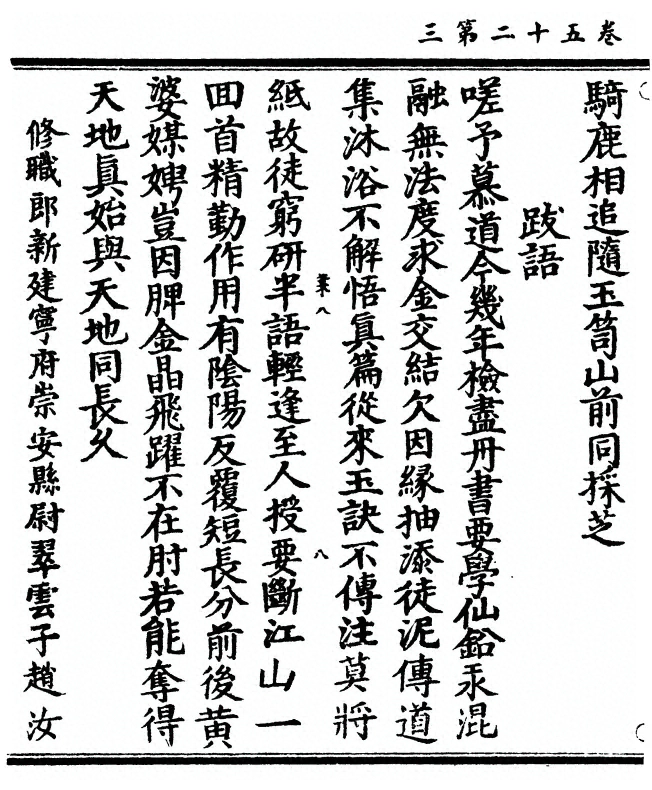 三第二十五卷
騎鹿相追隨玉笥山前同採芝
跋語
嗟予慕道今幾年檢盡丹書要學仙鉛汞混
融無法度求金交結欠因緣抽添徒泥傳道
集沐浴不解悟真篇從來玉訣不傳注莫將
紙故徒窮研半語輕逢至人授要斷江山一
業八
八
回首精勤作用有陰陽反覆短長分前後黃
婆媒娉豈因脾金晶飛躍不在肘若能奪得
天地真始與天地同長久
修職郎新建寧府崇安縣尉翠雲子趙汝